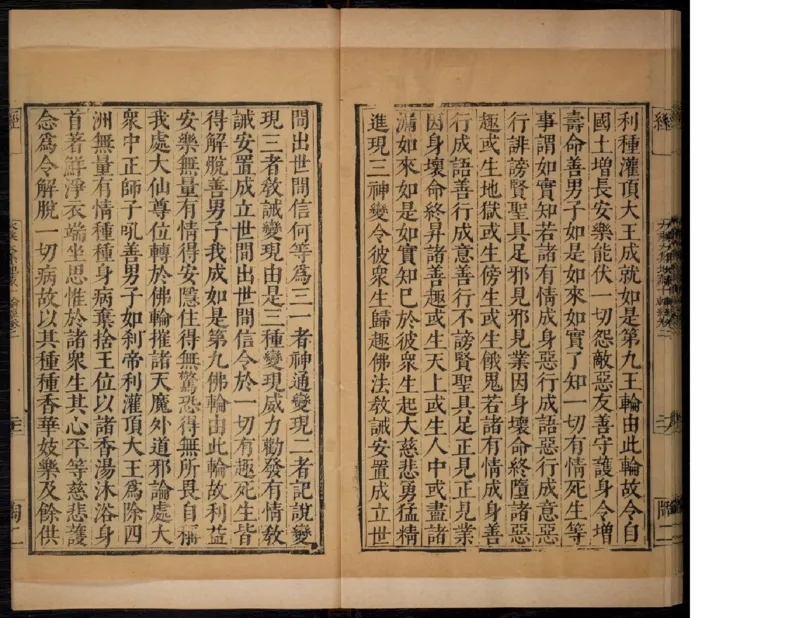 利種灌頂大王成就如是第九王輪由此輪故令自
國土增長安樂能伏一切怨敵惡友善守護身令增
壽命善男子如是如來如實了知一切有情死生等
事謂如實知若諸有情成身惡行成語惡行成意惡
行誹謗賢聖具足邪見邪見業因身壞命終墮諸惡
趣或生地獄或生傍生或生餓鬼若諸有情成身善
行成語善行成意善行不謗賢聖具足正見正見業
因身壞命終昇諸善趣或生天上或生人中或盡諸
漏如來如是如實知已於彼眾生起大慈悲勇猛精
進現三神變令彼衆生歸趣佛法教誡安置成立世
間出世間信何等爲三一者神通變現二者記說變
現三者教誡變現由是三種變現威力勸發有情教
誡安置成立世間出世間信令於一切有趣死生皆
得解脫善男子我成如是第九佛輪由此輪故利益
安樂無量有情得安隱住得無驚恐得無所畏自稱
我處大仙尊位轉於佛輪摧諸天魔外道邪論處大
衆中正師子吼善男子如刹帝利灌頂大王爲除四
洲無量有情種種身病棄捨王位以諸香湯沐浴身
首著鮮淨衣端坐思惟於諸衆生其心平等慈悲護
念爲令解脫一切病故以其種種香華妓樂及餘供